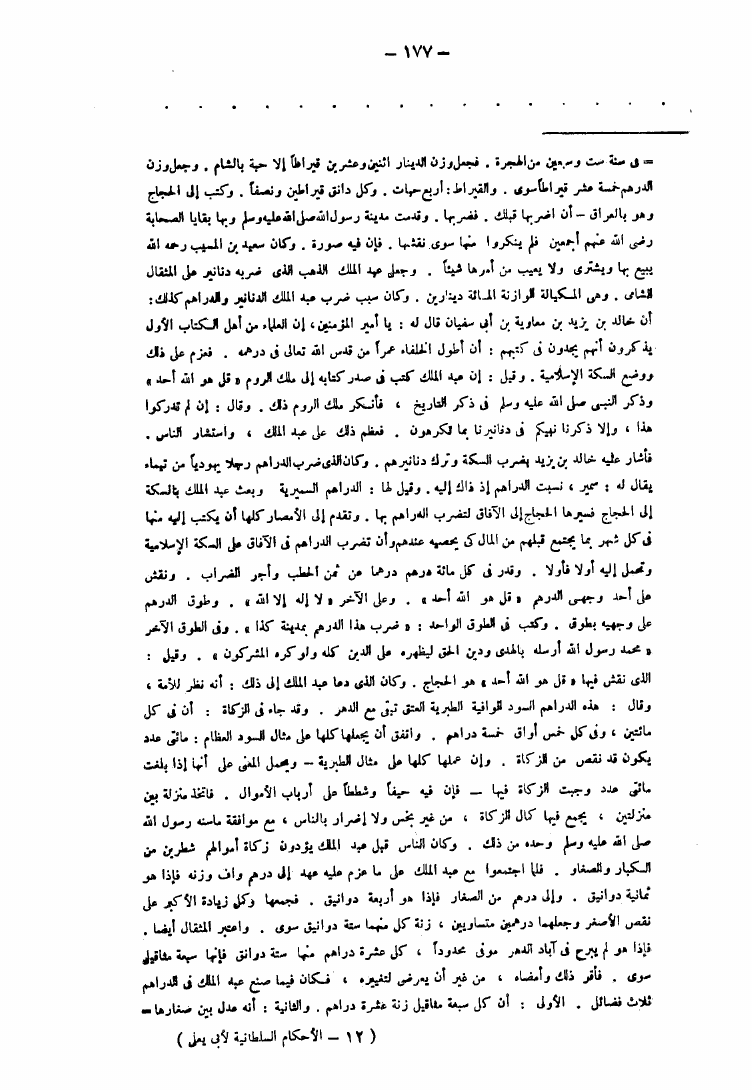 — ١٧٧ —
. . . . . . . . . . . . . . . .
= فى سنة ست وسبعين من الهجرة . فجعل وزن الدينار اثنين وعشرين قيراطاً إلا حبة بالشام . وجعل وزن
الدرهم خمسة عشر قيراطاً سوى . والقيراط : أربع حبات . وكل دانق قيراطين ونصفاً . وكتب إلى الحجاج
وهو بالعراق – أن اضربها قبلك . فضربها . وقدمت مدينة رسول الله صلى الله عليه وسلم وبها بقايا الصحابة
رضى الله عنهم أجمعين فلم ينكروا منها سوى نقشها . فإن فيه صورة . وكان سعيد بن المسيب رحمه الله
يبيع بها ويشترى ولا يعيب من أمرها شيئاً . وجعل عبد الملك الذهب الذى ضربه دنانير على المثقال
الشامى . وهى المكيالة الوازنة المائة دينارين . وكان سبب ضرب عبد الملك الدنانير والدراهم كذلك :
أن خالد بن يزيد بن معاوية بن أبى سفيان قال له : يا أمير المؤمنين ، إن العلماء من أهل الكتاب الأول
يذكرون أنهم يجدون فى كتبهم : أن أطول الخلفاء عمراً من قدس الله تعالى فى درهمه . فعزم على ذلك
ووضع السكة الإسلامية . وقيل : إن عبد الملك كتب فى صدر كتابه إلى ملك الروم « قل هو الله أحد »
وذكر النبى صلى الله عليه وسلم فى ذكر التاريخ ، فأنكر ملك الروم ذلك . وقال : إن لم تدركوا
هذا ، وإلا ذكرنا نبيكم فى دنانيرنا بما تكرهون . فعظم ذلك على عبد الملك ، واستشار الناس .
فأشار عليه خالد بن يزيد بضرب السكة وترك دنانيرهم . وكان الذى ضرب الدراهم رجلا يهودياً من تيماء
يقال له : سمير ، نسبت الدراهم إذ ذاك إليه . وقيل لها : الدراهم السميرية وبعث عبد الملك بالسكة
إلى الحجاج فسيرها الحجاج إلى الآفاق لتضرب الدراهم بها . وتقدم إلى الأمصار كلها أن يكتب إليه منها
فى كل شهر بما يجتمع قبلهم من المال كى يحصيه عندهم وأن تضرب الدراهم فى الآفاق على السكة الإسلامية
وتحمل إليه أولا فأولا . وقدر فى كل مائة درهم درهما عن ثمن الحطب وأجر الضراب . ونقش
على أحد وجهى الدرهم « قل هو الله أحد » . وعلى الآخر « لا إله إلا الله » . وطوق الدرهم
على وجهيه بطوق . وكتب فى الطوق الواحد : « ضرب هذا الدرهم بمدينة كذا » . وفى الطوق الآخر
« محمد رسول الله أرسله بالهدى ودين الحق ليظهره على الدين كله ولو كره المشركون » . وقيل :
الذى نقش فيها « قل هو الله أحد » هو الحجاج . وكان الذى دعا عبد الملك إلى ذلك : أنه نظر للأمة ،
وقال : هذه الدراهم السود الوافية الطبرية العتق تبقى مع الدهر . وقد جاء فى الزكاة : أن فى كل
مائتين ، وفى كل خمس أواق خمسة دراهم . واتفق أن يجعلها كلها على مثال السود العظام : مائتى عدد
يكون قد نقص من الزكاة . وإن عملها كلها على مثال الطبرية – ويحمل المعنى على أنها إذا بلغت
مائتى عدد وجبت الزكاة فيها – فإن فيه حيفاً وشططاً على أرباب الأموال . فاتخذ منزلة بين
منزلتين ، يجمع فيها كمال الزكاة ، من غير بخس ولا إضرار بالناس ، مع موافقة ماسنه رسول الله
صلى الله عليه وسلم وحده من ذلك . وكان الناس قبل عبد الملك يؤدون زكاة أموالهم شطرين من
الكبار والصغار . فلما اجتمعوا مع عبد الملك على ما عزم عليه عهد إلى درهم واف وزنه فإذا هو
ثمانية دوانيق . وإلى درهم من الصغار فإذا هو أربعة دوانيق . فجمعها وكل زيادة الأكبر على
نقص الأصغر وجعلهما درهمين متساويين ، زنة كل منهما ستة دوانيق سوى . واعتبر المثقال أيضا .
فإذا هو لم يبرح فى آباد الدهر موفى محدوداً ، كل عشرة دراهم منها ستة دوانق فإنها سبعة مثاقيل
سوى . فأقر ذلك وأمضاه ، من غير أن يعرض لتغييره ، فكان فيما صنع عبد الملك فى الدراهم
ثلاث فضائل . الأولى : أن كل سبعة مثاقيل زنة عشرة دراهم . والثانية : أنه عدل بين صغارها =
( ١٢ – الأحكام السلطانية لأبى يعلى )